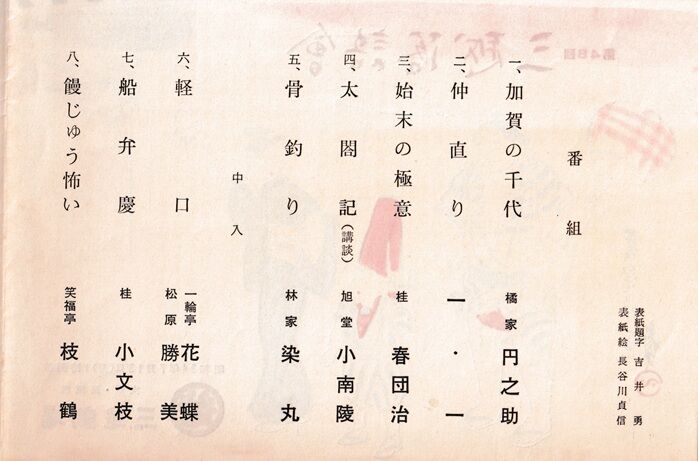 表紙題字 吉井 勇
表紙絵 長谷川貞信
番組
一、加賀の千代 橘家 円之助
二、仲直り 一・一
三、始末の極意 桂 春団治
四、太閤記(講談) 旭堂 小南陵
五、骨釣り 林家 染丸
中入
六、軽口 一輪亭 花蝶
松原 勝美
七、船弁慶 桂 小文枝
八、饅じゅう怖い 笑福亭 枝鶴
第48回
三越落語會